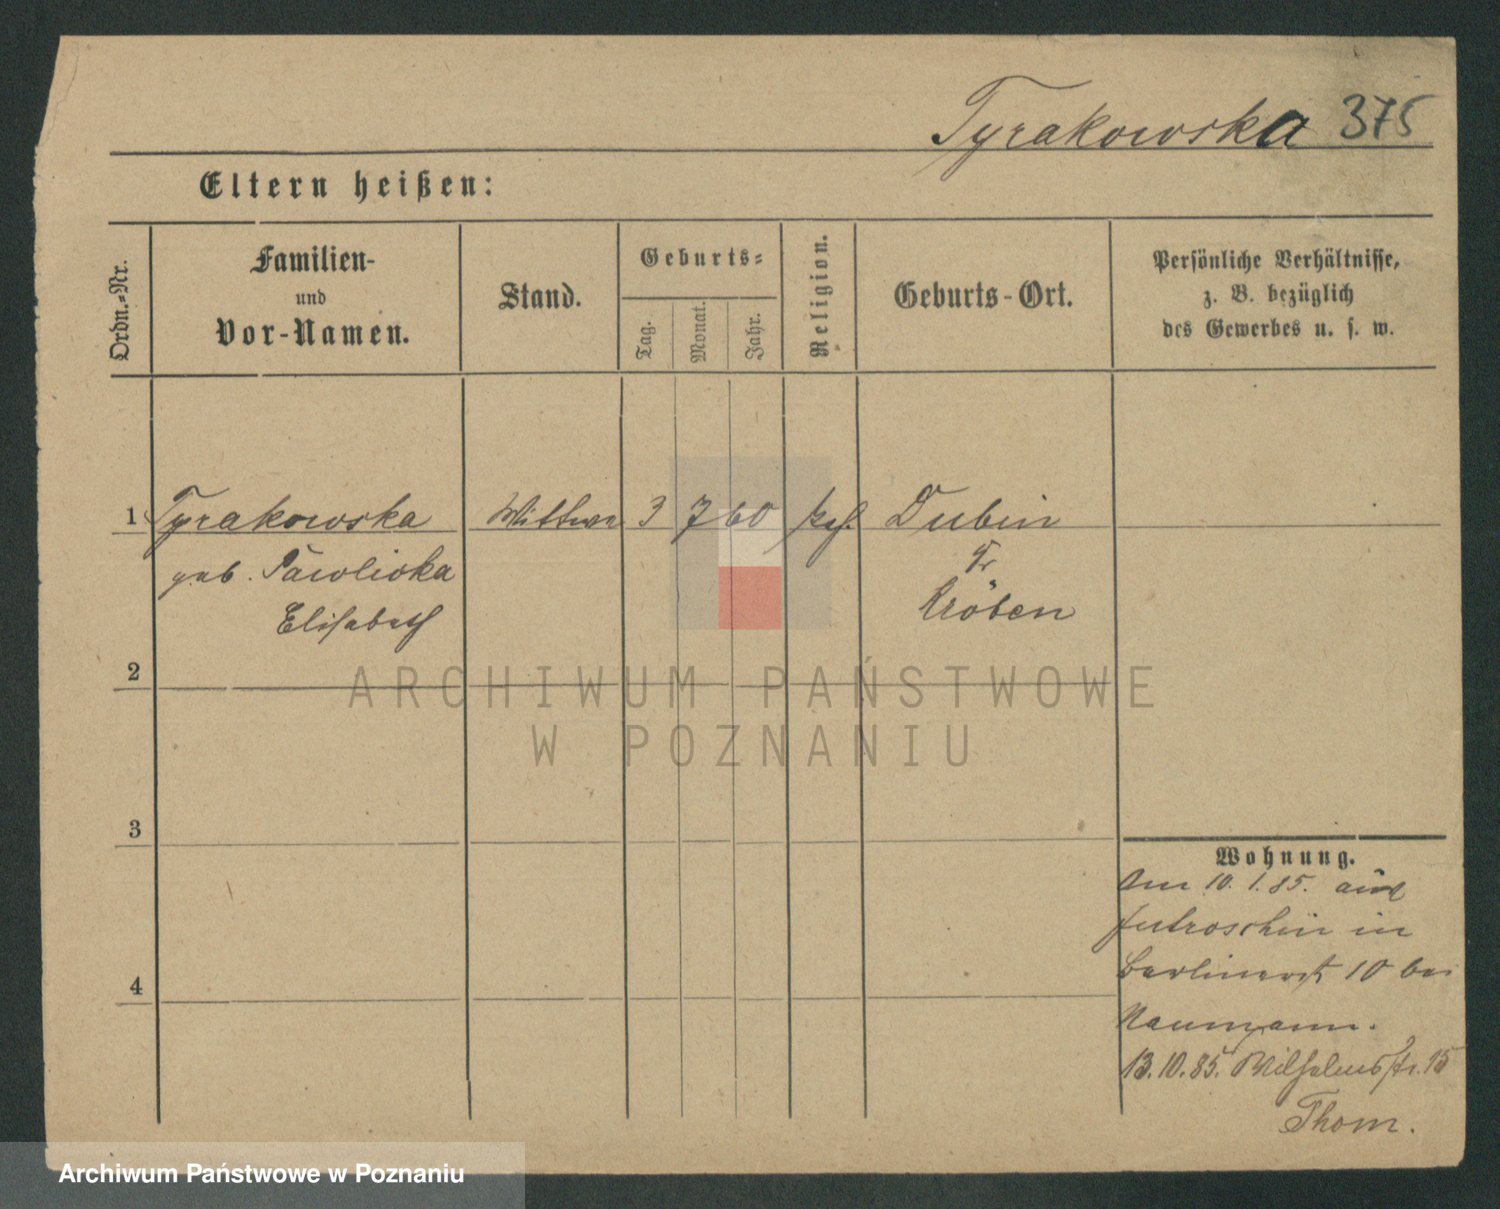 Tyrakowska 375
Eltern heißen:
Ordn.=Nr.
Familien-
und
Vor-Namen.
Stand.
Geburts=
Tag.
Monat.
Jahr.
Religion.
Geburts-Ort.
Persönliche Verhältnisse,
z. B. bezüglich
des Gewerbes u. s. w.
1 Tyrakowska Wittwe 3 7 60 kath. Dubin
geb. Pawlicka Kr
Elisabeth Kröben
2
ARCHIWUM PAŃSTWOWE
W POZNANIU
3
Wohnung.
Am 10. 1. 85. aus
Jutroschin in
Berlinerst 10 bei
4
Naumann.
13.10.85. Wilhelmsstr. 15
Thom.
Archiwum Państwowe w Poznaniu